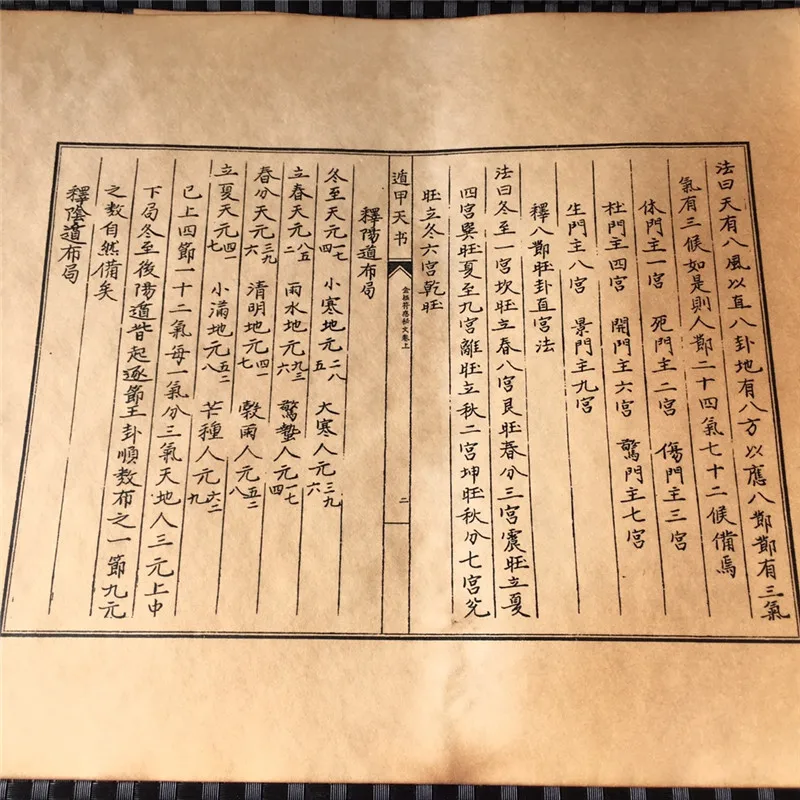 法曰天有八風以直八卦地有八方以應八節節有三氣
氣有三候如是則人節二十四氣七十二候備焉
休門主一宮　死門主二宮　傷門主三宮
杜門主四宮　開門主六宮　驚門主七宮
生門主八宮　景門主九宮
釋八節旺卦直宮法
法曰冬至一宮坎旺立春八宮艮旺春分三宮震旺立夏
四宮巽旺夏至九宮離旺立秋二宮坤旺秋分七宮兌
旺立冬六宮乾旺
遁甲天书
金函符應秘文卷上
二
釋陽遁布局
冬至天元一七四　小寒地元二八五　大寒人元三九六
立春天元八五二　雨水地元九六三　驚蟄人元一七四
春分天元三九六　清明地元四一七　穀雨人元五二八
立夏天元四一七　小滿地元五二八　芒種人元六三九
已上四節一十二氣每一氣分三氣天地人三元上中
下局冬至後陽遁皆起逐節王卦順數布之一節九元
之数自然備矣
釋陰遁布局